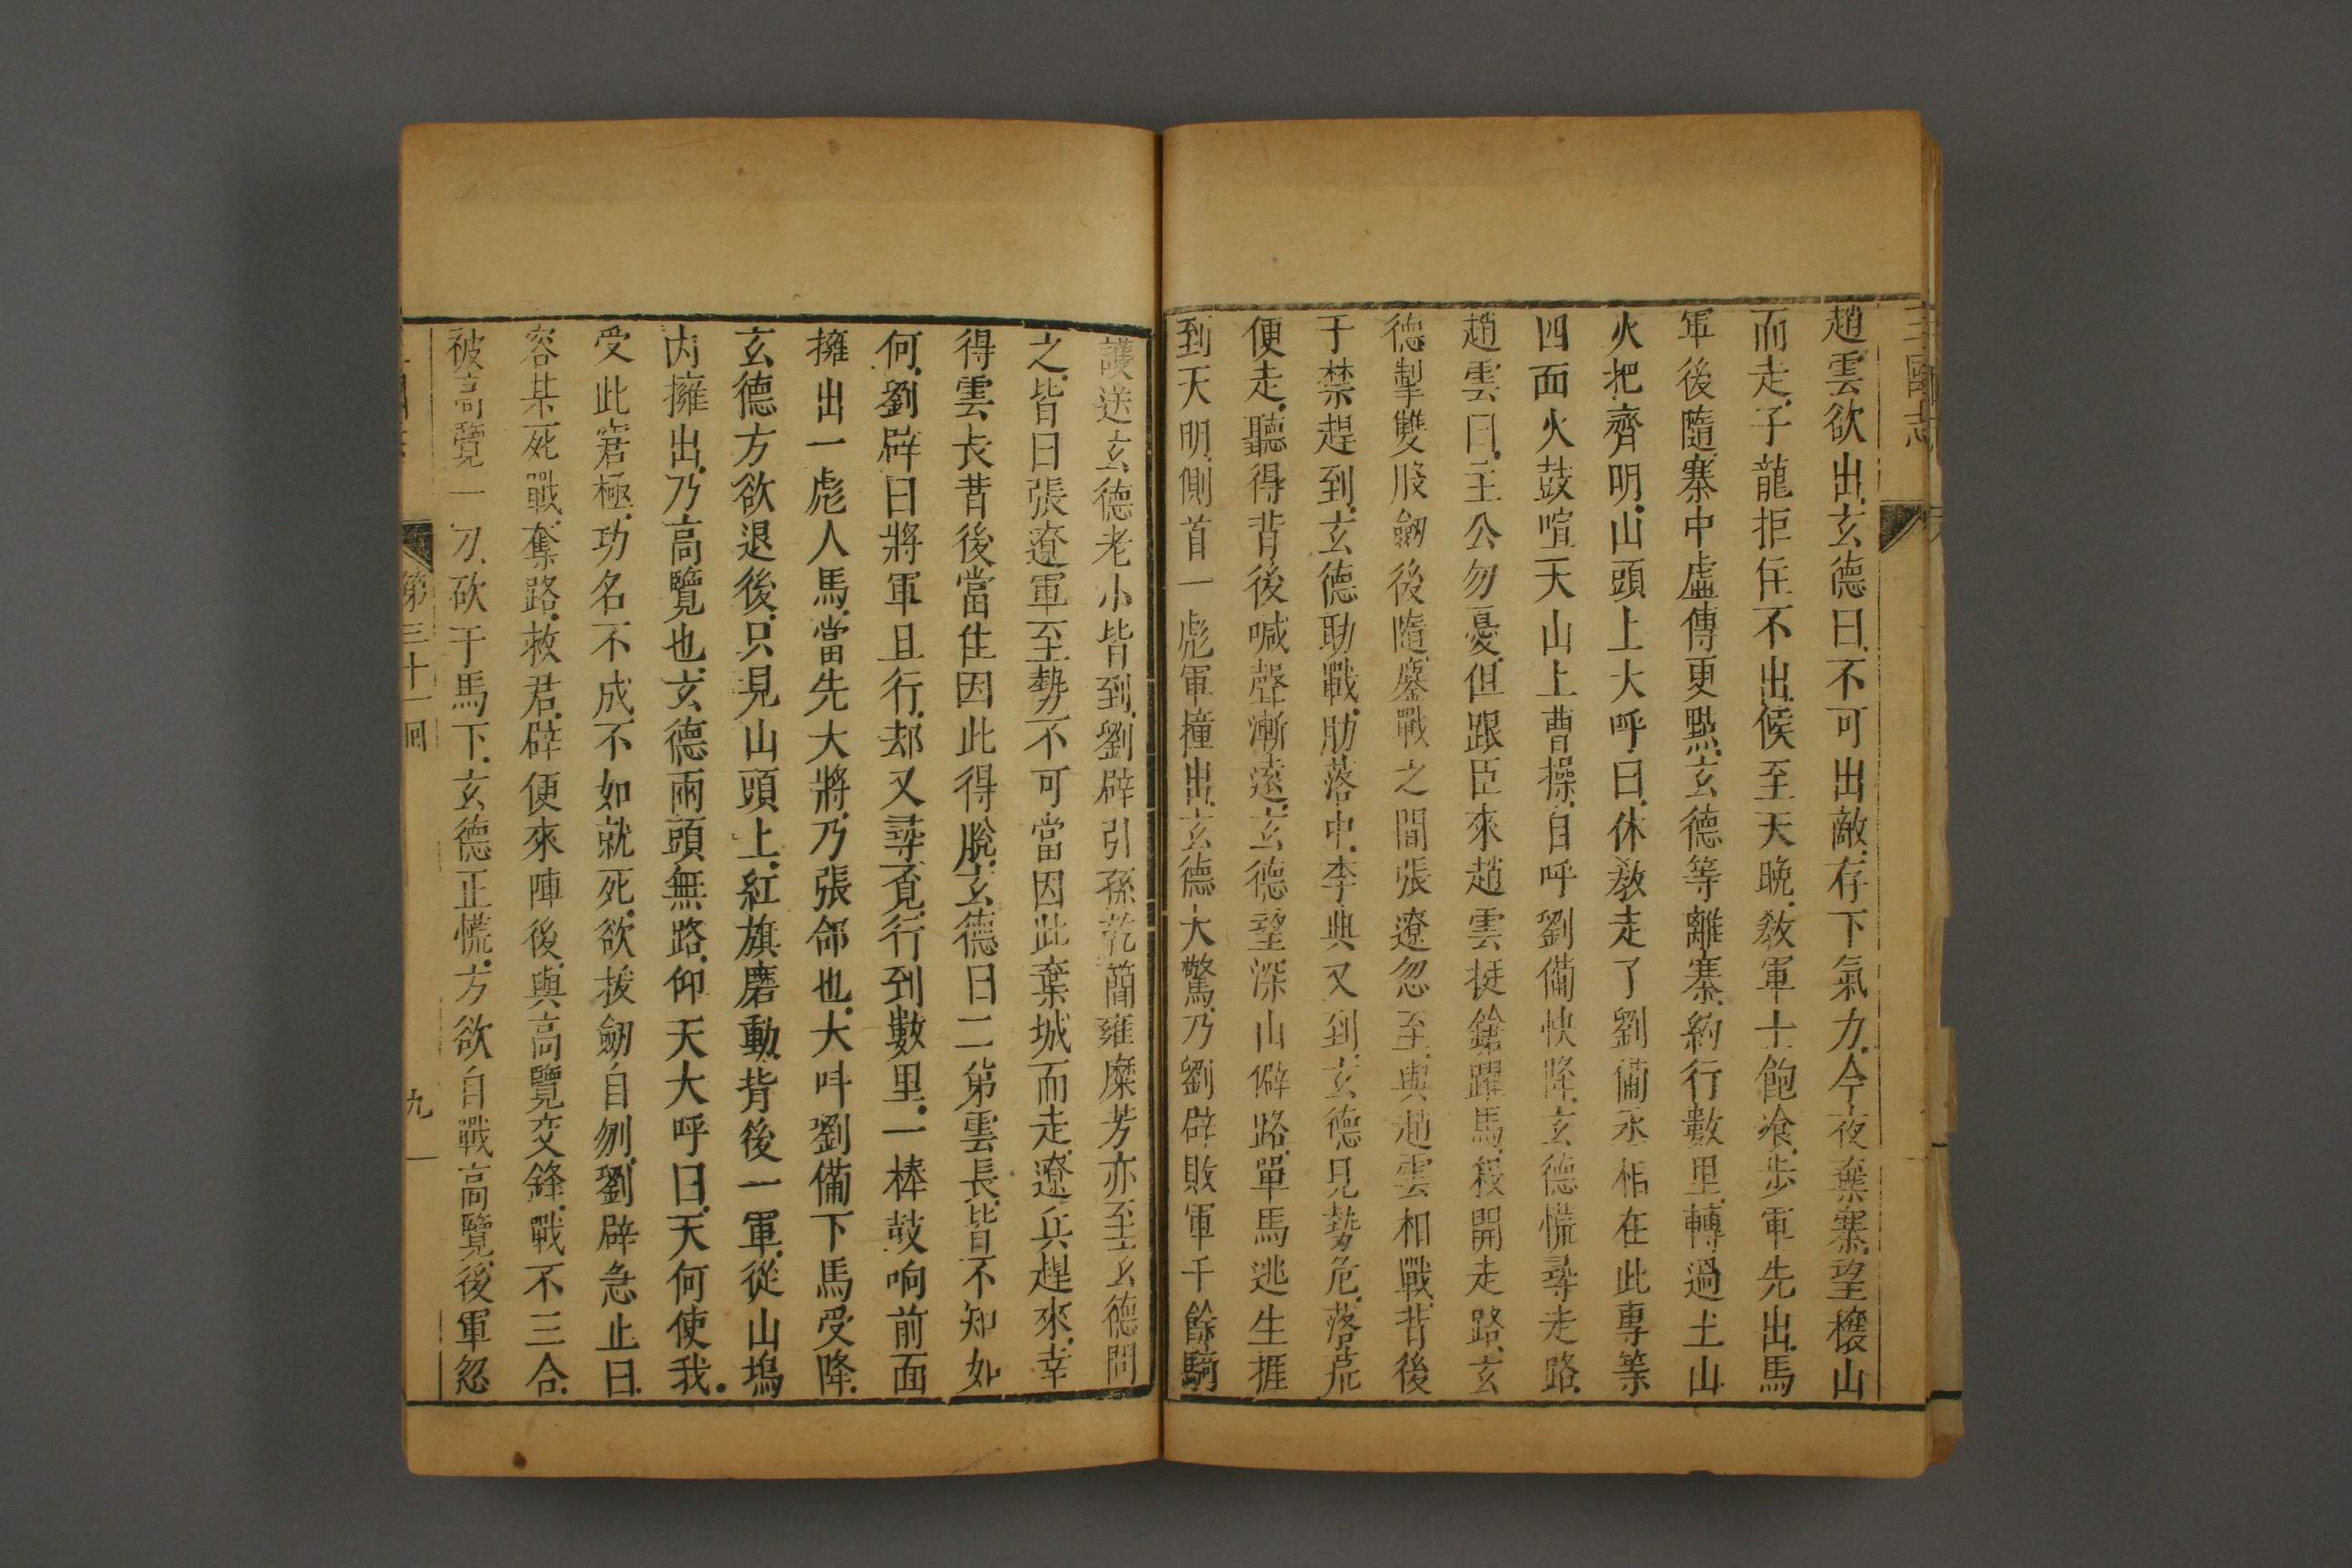 三國志
趙雲欲出玄德曰不可出敵存下氣力今夜棄寨望穰山
而走子龍拒住不出候至天晚教軍士飽飡步軍先出馬
軍後隨寨中虛傳更點玄德等離寨約行數里轉過土山
火把齊明山頭上大呼曰休教走了劉備丞相在此專等
四面火鼓喧天山上曹操自呼劉備快降玄德慌尋走路
趙雲曰主公勿憂但跟臣來趙雲挺鎗躍馬殺開走路玄
德掣雙股劒後隨鏖戰之間張遼忽至與趙雲相戰背後
于禁趕到玄德助戰肋落中李典又到玄德見勢危落荒
便走聽得背後喊聲漸遠玄德望深山僻路單馬逃生捱
到天明側首一彪軍撞出玄德大驚乃劉辟敗軍千餘騎
護送玄德老小皆到劉辟引孫乾簡雍糜芳亦至玄德問
之皆曰張遼軍至勢不可當因此棄城而走遼兵趕來幸
得雲長昔後當住因此得脫玄德曰二弟雲長皆不知如
何劉辟曰將軍且行却又尋覓行到數里一棒鼓响前面
擁出一彪人馬當先大將乃張郃也大呌劉備下馬受降
玄德方欲退後只見山頭上紅旗磨動背後一軍從山塢
內擁出乃高覽也玄德兩頭無路仰天大呼曰天何使我
受此窘極功名不成不如就死欲拔劒自刎劉辟急止曰
容某死戰奪路救君辟便來陣後與高覽交鋒戰不三合
被高覽一刀砍于馬下玄德正慌方欲自戰高覽後軍忽
第三十一回
九